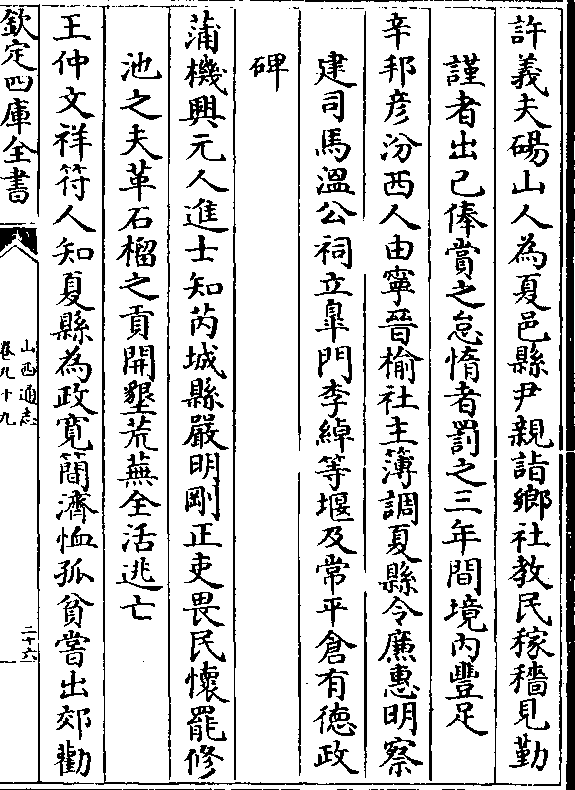 許義夫碭山人為夏邑縣尹親詣鄉社教民稼穡見勤
謹者出己俸賞之怠惰者罰之三年間境內豐足
辛邦彦汾西人由寧晉榆社主薄調夏縣令廉惠明察
建司馬溫公祠立臯門李綽等堰及常平倉有德政
碑
蒲機興元人進士知芮城縣嚴明剛正吏畏民懷罷修
池之夫革石榴之貢開墾荒蕪全活逃亡
王仲文祥符人知夏縣為政寬簡濟恤孤貧嘗出郊勸
欽定四庫全書
山西通志
卷九十九
二十六